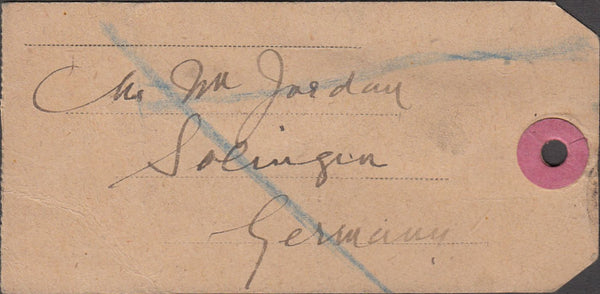 Mr Wm Jordan
Solingen
Germany